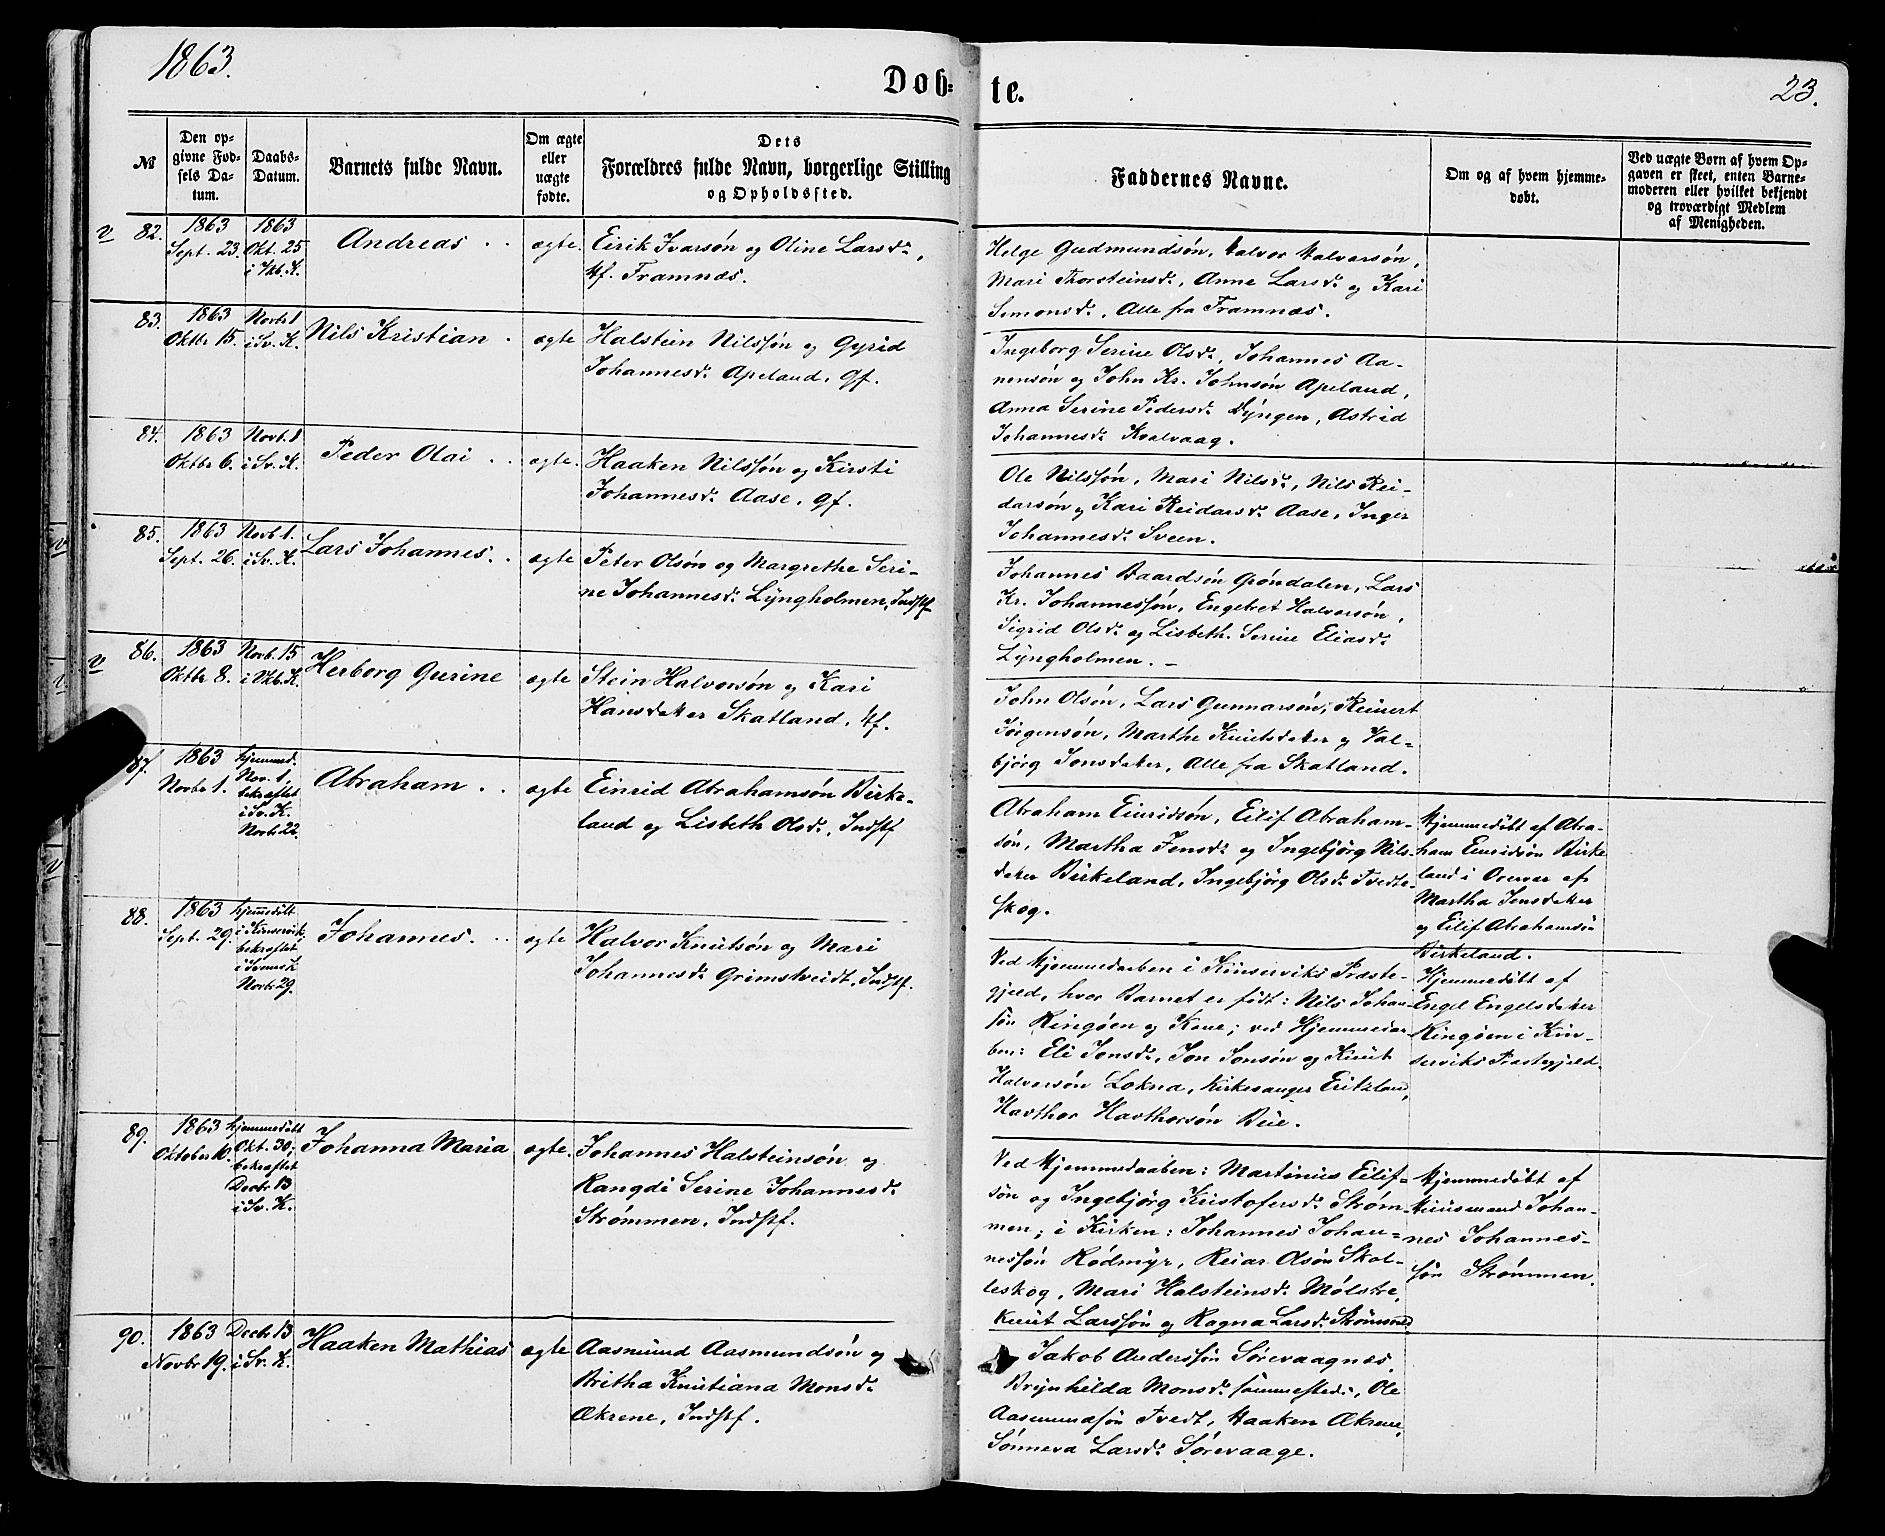 1863.
Døb-
te.
23.
№
Den op-
givne Fød-
sels Da-
tum.
Daabs-
Datum.
Barnets fulde Navn.
Om ægte
eller
uægte
fødte.
Dets
Forældres fulde Navn, borgerlige Stilling
og Opholdssted.
Faddernes Navne.
Om og af hvem hjemme-
døbt.
Ved uægte Børn af hvem Op-
gaven er skeet, enten Barne-
moderen eller hvilket bekjendt
og troværdigt Medlem
af Menigheden.
v 82.
1863
Sept. 23.
1863
Okt. 25
i Vkb. K.
Andreas . .
ægte.
Eirik Ivarsøn og Oline Larsdr,
Hf. Framnæs.
Helge Gudmundsøn, Halvor Halvorsøn,
Mari Thorsteinsdr, Anne Larsdr og Kari
Simonsdr, Alle fra Framnæs.
83.
1863
Oktbr 15.
Novbr 1
i Sv. K.
Nils Kristian .
ægte
Halstein Nilssøn og Gyrid
Johannesdr Apeland, Gf.
Ingeborg Serine Olsdr, Johannes Aa-
nensøn og John Kr. Johnsøn Apeland,
Anna Serine Pedersdr Dyngen, Astrid
Johannesdr Kvalvaag.
84.
1863
Oktbr 6.
Novb. 1
i Sv. K.
Peder Olai . .
ægte.
Haaken Nilssøn og Kirsti
Johannesdr Aase, Gf.
Ole Nilssøn, Mari Nilsdr, Nils Rei-
darsøn og Kari Reidarsdr Aase, Inger
Johannesdr Sveen.
85.
1863
Sept. 26.
Novb 1.
i Sv. K.
Lars Johannes. .
ægte
Peter Olsøn og Margrethe Seri-
ne Johannesdr Lyngholmen, Indstf
Johannes Baardsøn Grøndalen, Lars
Kr. Johannessøn, Engebret Halvorsøn,
Sigrid Olsdr og Lisbeth Serine Eliasdr
Lyngholmen. –
v 86.
1863
Oktbr 8.
Novb. 15
i Vkb. K.
Herborg Gurine
ægte
Stein Halvorsøn og Kari
Hansdatter Skatland, Hf.
John Olsøn, Lars Gunnarsøn, Reinert
Jørgensøn, Marthe Knutsdatter og Val-
bjørg Jonsdatter, Alle fra Skatland.
87.
1863
Novbr 1.
hjemmed.
Nov. 1,
bekræftet
i Sv. K.
Novbr 22.
Abraham . .
ægte
Einrid Abrahamsøn Birke-
land og Lisbeth Olsdr, Indstf
Abraham Einridsøn, Eilif Abraham-
søn, Martha Jensdr og Ingebjørg Nils-
datter Birkeland, Ingebjørg Olsdr Tvedte-
skog.
Hjemmedøbt af Abra-
ham Einridsøn Birke
land i Overvær af
Martha Jensdatter
og Eilif Abrahamsøn
Birkeland.
88.
1863
Sept. 29.
hjemmedøbt
i Kinservik,
bekræftet
i
Novbr 29.
Johannes. . .
ægte
Halvor Knutsøn og Mari
Johannesdr Grimstveidt, Indstf.
Ved Hjemmedaaben i Kinserviks Præste-
gjeld, hvor Barnet er født: Nils Johan-
søn Ringøen og Kone; ved Hjemmedaa-
ben: Eli Jonsdr, Jon Jonsøn og Knut
Halvorsøn Lokna, Kirkesanger Eritzland,
Havthor Havthorsøn Bue.
Hjemmedøbt af
Engel Engelsdatter
Ringøen i Kin-
serviks Præstegjeld.
89.
1863
Oktober 10.
hjemmedøbt
Okt. 30;
bekræftet
Decbr 13
i Sv. K.
Johanna Maria
ægte.
Johannes Halsteinsøn og
Rangdi Serine Johannesdr
Strømmen, Indstf.
Ved Hjemmedaaben: Martinius Eilif-
søn og Ingebjørg Kristofersdr Strøm-
men; i Kirken: Johannes Johan-
nessøn Rødmyr, Reiar Olsøn Skol-
leskog, Mari Halsteinsdr Mølstre,
Knut Larssøn og Ragna Larsdr
Hjemmedøbt af
Huusmand Johan-
nes Johannes-
søn Strømmen.
90.
1863
Novbr 19.
Decbr 13
i Sv. K.
Haaken Mathias
ægte
Aasmund Aasmundsøn og
Britha Knutiana Monsdr
Ækrene, Indstf.
Jakob Anderssøn Sørevaagnes,
Brynhilda Monsdr sammesteds, Ole
Aasmundsøn Tvedt, Haaken Ækrene,
Sønneva Larsdr Sørevaage.